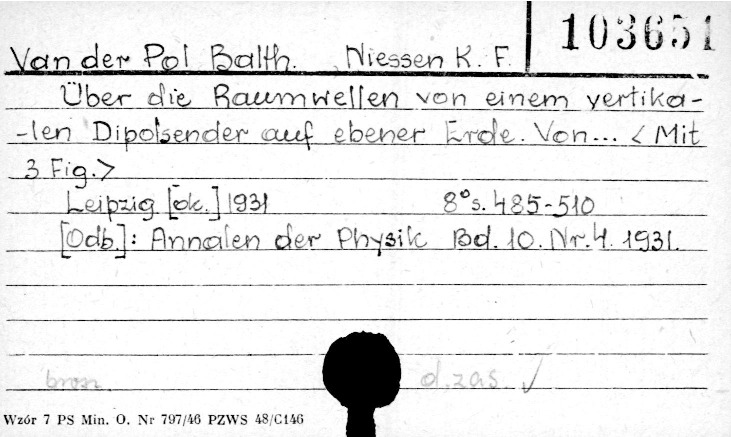 103651
Van der Pol Balth. Niessen K. F.
Über die Raumwellen von einem vertika-
-len Dipolsender auf ebener Erde. Von... < Mit
3 Fig.>
Leipzig [ok.] 1931 8° s. 485-510
[Odb.]: Annalen der Physik Bd. 10. Nr. 4. 1931.
brosz. d. zas. ✓
Wzór 7 PS Min. O. Nr 797/46 PZWS 48/C146